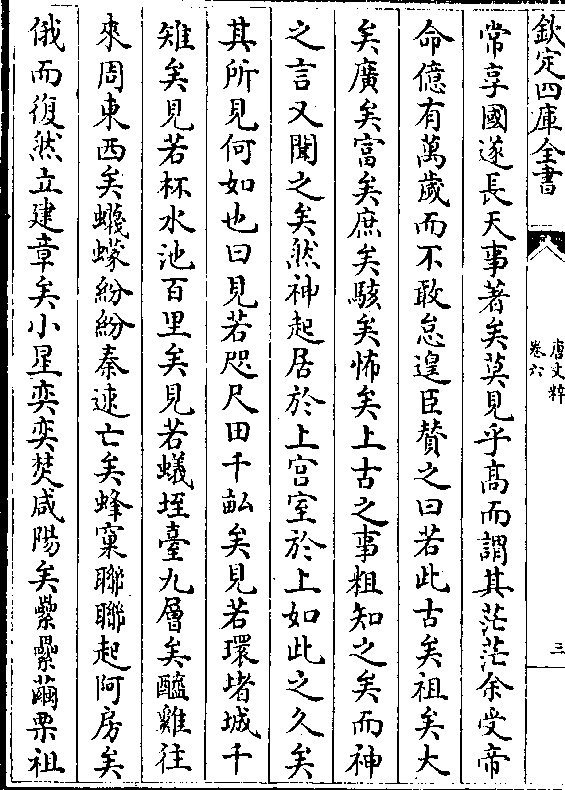 欽定四庫全書
唐文粹
卷六
三
常享國遂長天事著矣莫見乎高而謂其茫茫余受帝
命億有萬歲而不敢怠遑臣賛之曰若此古矣祖矣大
矣廣矣富矣庶矣駭矣怖矣上古之事粗知之矣而神
之言又聞之矣然神起居於上宮室於上如此之久矣
其所見何如也曰見若咫尺田千畝矣見若環堵城千
雉矣見若杯水池百里矣見若蟻垤臺九層矣醯雞往
來周東西矣蠛蠓紛紛秦速亡矣蜂窠聯聯起阿房矣
俄而復然立建章矣小星奕奕焚咸陽矣纍纍繭栗祖